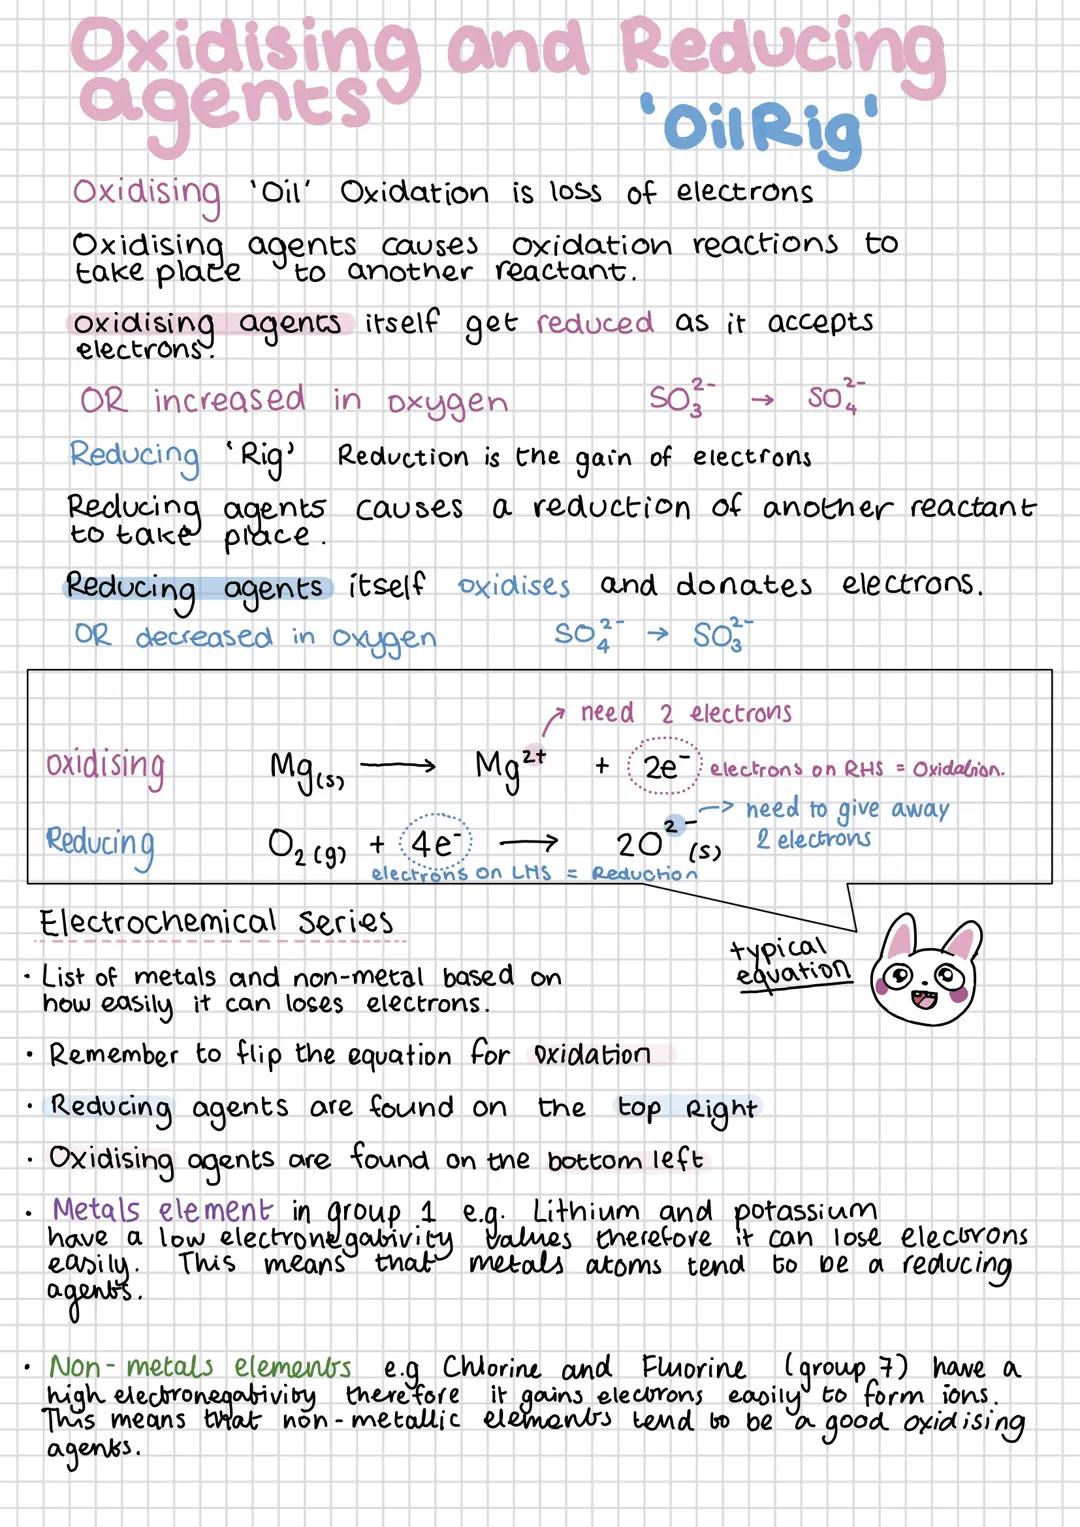 Oxidising and Reducing
agents
'OilRig'
Oxidising 'Oil' Oxidation is loss of electrons
Oxidising agents causes oxidation reactions to
take place to another reactant.
oxidising agents itself get reduced as it accepts
electrons.
OR increased in oxygen SO₃²⁻ → SO₄²⁻
Reducing 'Rig' Reduction is the gain of electrons
Reducing agents causes a reduction of another reactant
to take place.
Reducing agents itself oxidises and donates electrons.
OR decreased in oxygen SO₄²⁻ → SO₃²⁻
need 2 electrons
oxidising Mg(s) → Mg²⁺ + 2e⁻ electrons on RHS = Oxidation.
need to give away
2 electrons
Reducing O₂(g) + 4e⁻ → 2O²⁻(s)
electrons on LHS = Reduction
Electrochemical series
typical
equation
· List of metals and non-metal based on
how easily it can loses electrons.
· Remember to flip the equation for oxidation
· Reducing agents are found on the top Right
· Oxidising agents are found on the bottom left
· Metals element in group 1 e.g. Lithium and potassium
have a low electronegativity values therefore it can lose electrons
easily. This means that metals atoms tend to be a reducing
agents.
· Non-metals elements e.g Chlorine and Fluorine (group 7) have a
high electronegativity therefore it gains electrons easily to form ions.
This means that non-metallic elements tend to be a good oxidising
agents.